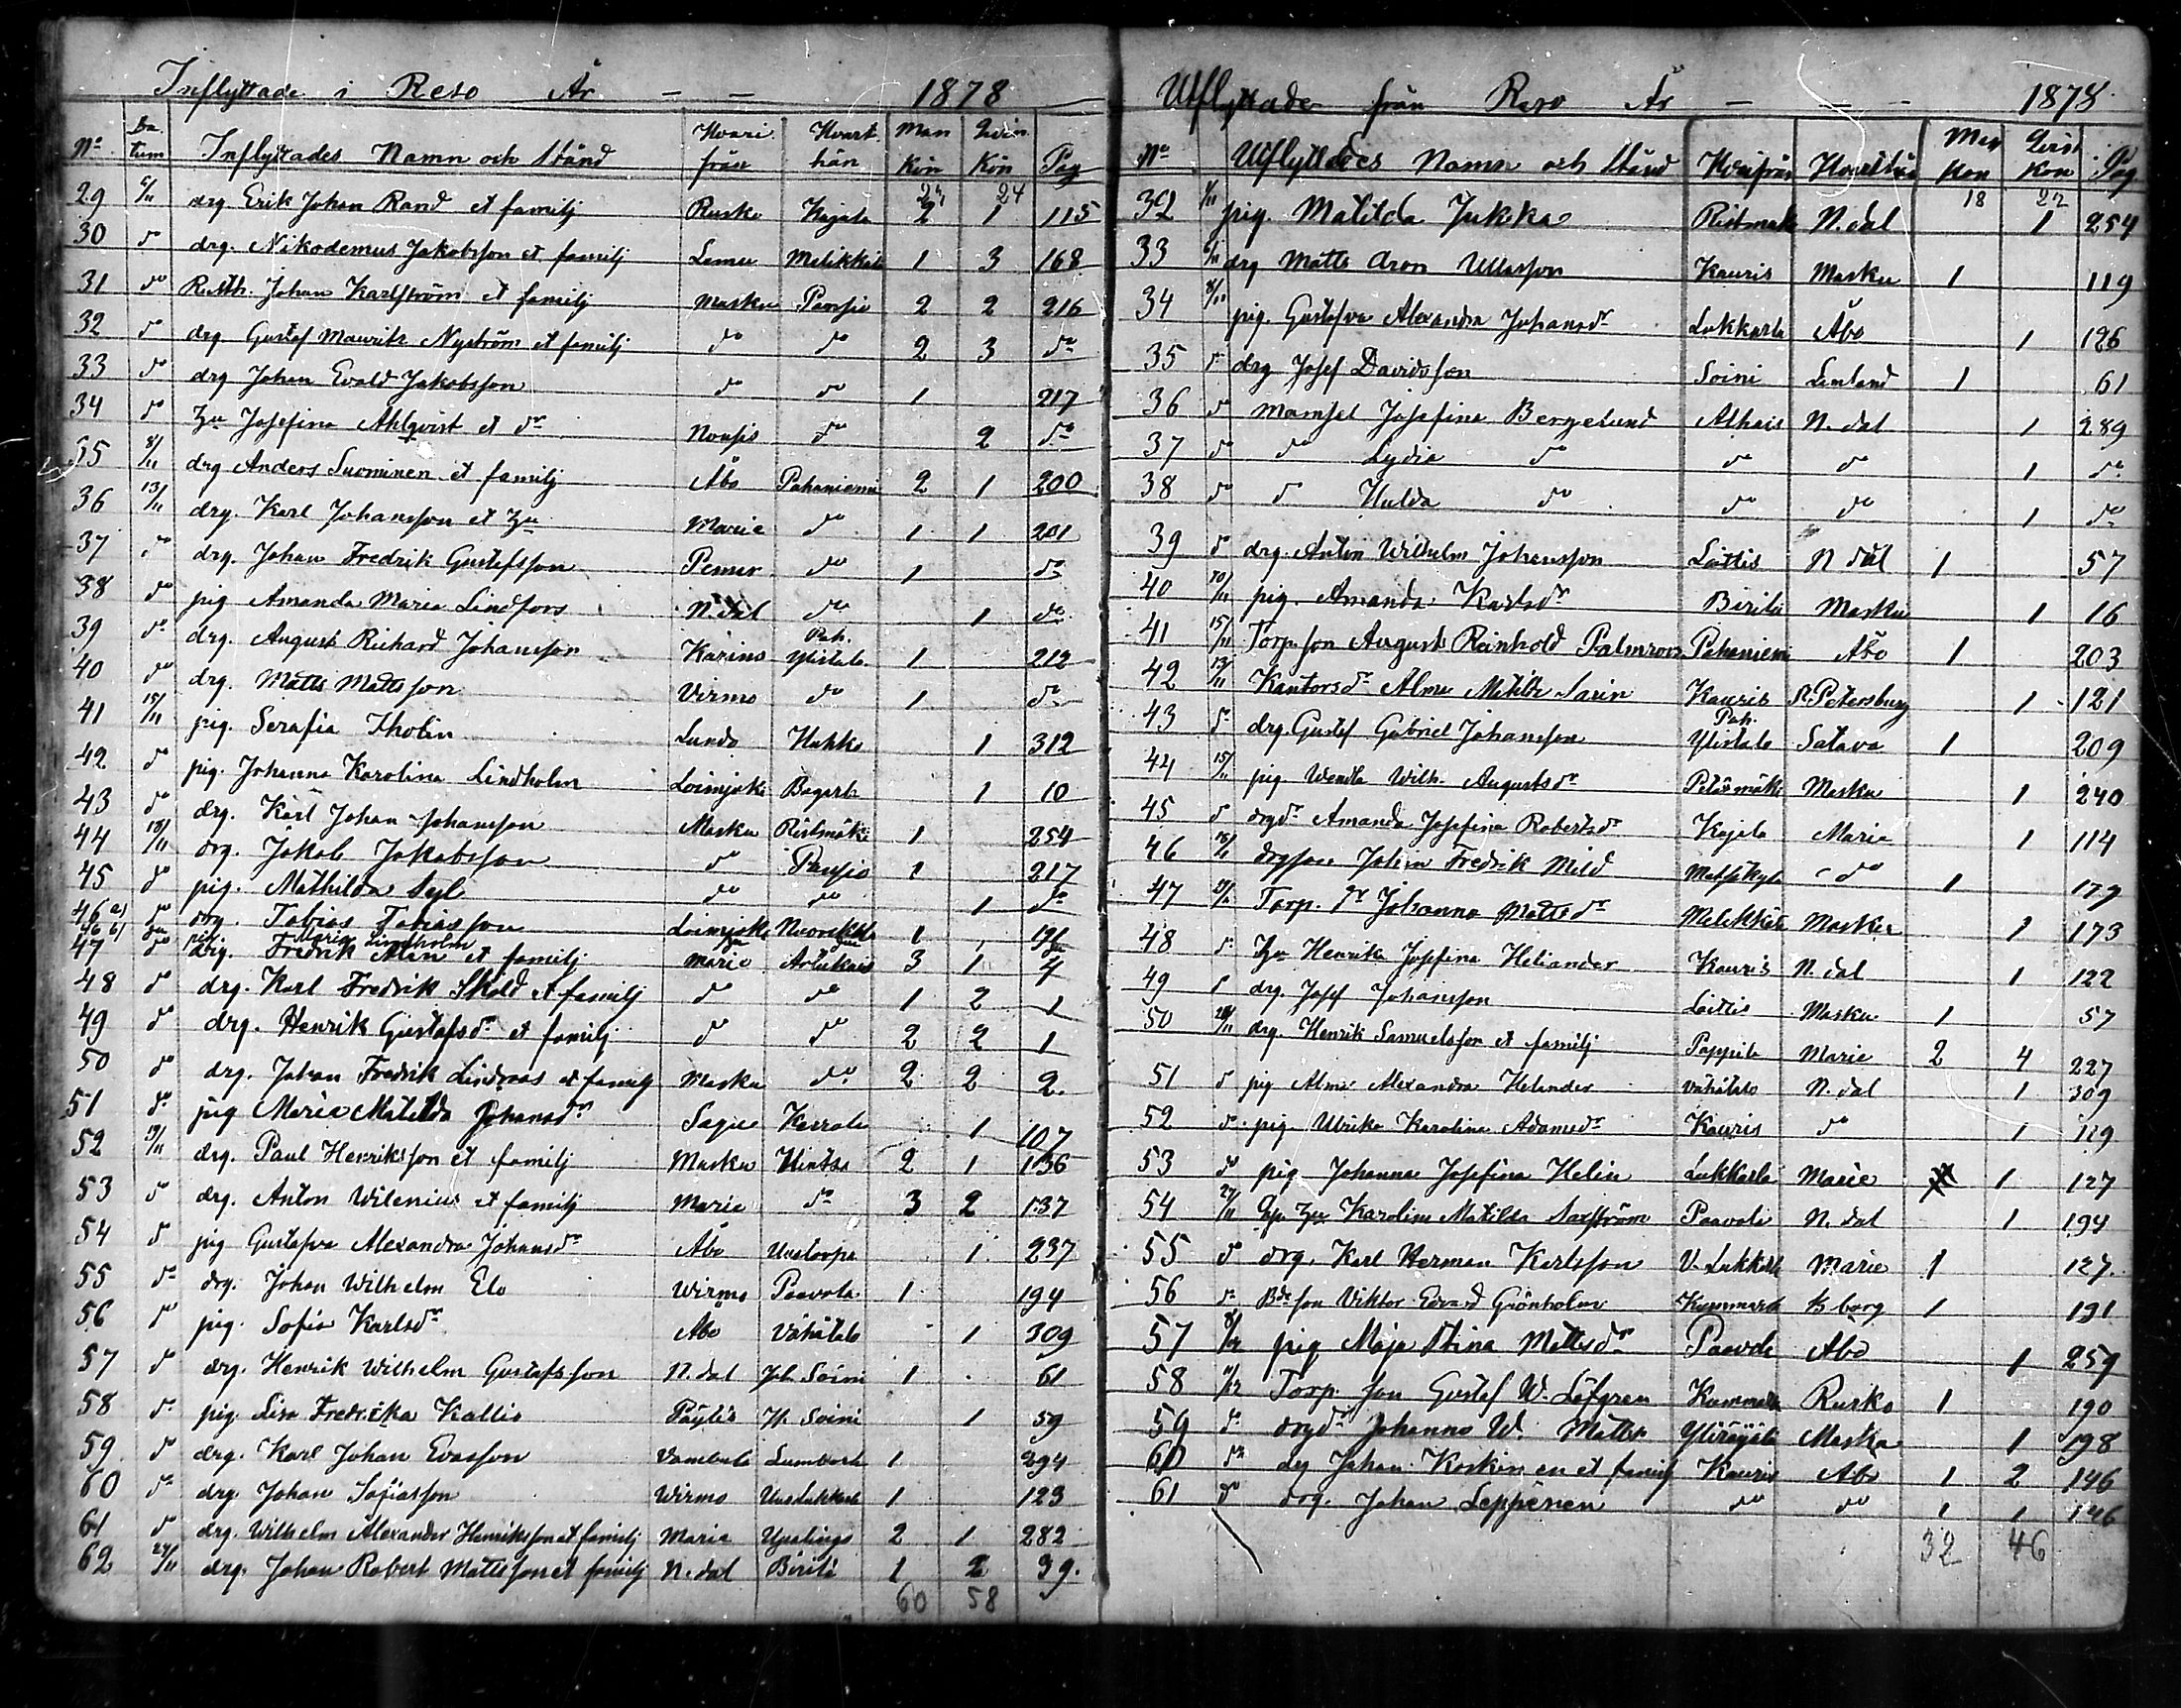 Inflyttade i Reso År — — 1878
No Datum Inflyttades Namn och Stånd Hvarifrån Hvarthän Mankön Qvinkön Pag
24
29 6/11 drg Erik Johan Rand et familj Rusko Kajala 2 1 115
30 do drg. Nikodemus Jakobsson et familj Lemu Melikkälä 1 3 168
31 do Johan Karlström et familj Masku Pansio 2 2 216
32 do drg Gustaf Maurits Nyström et familj do do 2 3 do
33 do drg Johan Evald Jakobsson do do 1 217
34 do Josefina Ahlqvist et dr Nousis do 2 do
35 8/11 drg Anders Suominen et familj Åbo Pahaniemi 2 1 200
36 13/11 drg. Karl Johansson et hu Marie do 1 1 201
37 do drg. Johan Fredrik Gustafsson Pemar do 1 do
38 do pig Amanda Maria Lindfors N.dal do 1 do
39 do drg. August Richard Johansson Karins Pah. Ylistalo 1 212
40 do drg. Matts Mattsson Virmo do 1 do
41 15/11 pig. Serafia Tholin Lundo Hukko 1 312
42 do pig. Johanna Karolina Lindholm Loimjoki Bagarla 1 10
43 do drg. Karl Johan Johansson Masku Ristimäki 1 254
44 18/11 drg. Jakob Jakobsson do Pansio 1 217
45 do pig. Mathilda do do 1 do
46 a) do drg. Tobias Tobiasson Loimjoki 1
46 b) pig. Maria Lindholm
47 do drg. Fredrik Alén et familj Marie Artukais 3 1 4
48 do drg. Karl Fredrik Sköld et familj do do 1 2 1
49 do drg. Henrik Gustafsd. et familj do do 2 2 1
50 do drg. Johan Fredrik Lindroos et familj Masku do 2 2 2
51 do pig Maria Matilda Johansdr Sagu Kairala 1 107
52 19/11 drg. Paul Henriksson et familj Masku Hintsa 2 1 136
53 do drg. Anton Wilenius et familj Marie do 3 2 137
54 do pig Gustafva Alexandra Johansdr Åbo 1 237
55 do drg. Johan Wilhelm Elo Wirmo Paavola 1 194
56 do pig. Sofia Karlsdr Åbo Vähätalo 1 309
57 do drg. Henrik Wilhelm Gustafsson N.dal Soini 1 61
58 do pig. Lisa Fredrika Kallio Pöytis Soini 1 59
59 do drg. Karl Johan Evasson Vambula 1 294
60 do drg Johan Wirmo 1 123
61 do drg. Wilhelm Alexander Henriksson et familj Marie Upalinge 2 1 282
62 24/11 drg. Johan Robert Mattsson et familj N.dal Birilä 1 2 39.
60 58
Utflyttade från Reso År — — — 1878
No Utflyttades Namn och Stånd Hvarifrån Hvarthän Mankön Qvinkön Pag
18 22
32 pig Matilda Jukka Ristimäki N.dal 1 254
33 6/11 drg Matts Aron Ullasson Kauris Masku 1 119
34 8/11 pig. Gustafva Alexandra Johansdr Lukkarla Åbo 1 126
35 do drg Josef Davidsson Soini Lemland 1 61
36 do Mamsel Josefina Bergelund Alhais N.dal 1 289
37 do do Lydia do do do 1 do
38 do do Hulda do do do 1 do
39 do drg. Anton Wilhelm Johansson Laittis N.dal 1 57
40 10/11 pig. Amanda Karlsdr Birilä Masku 1 16
41 15/11 Torp. son August Reinhold Palmroos Pahaniemi Åbo 1 203
42 13/11 Kantorsdr Alma Matilda Sarin Kauris St Petersburg 1 121
43 do drg. Gustaf Gabriel Johansson Pah. Ylistalo Satava 1 209
44 15/11 pig Wendla Wilh. Augustsdr Petäsmäki Masku 1 240
45 do drgdr Amanda Josefina Robertsdr Kajala Marie 1 114
46 drgson Johan Fredrik Mild do 1
47 Torp. dr Johanna Mattsdr Melikkälä Masku 1 173
48 do Henrika Josefina Heliander Kauris N.dal 1 122
49 do drg. Josef Johansson Laittis Masku 1 57
50 drg. Henrik Samuelsson et familj Pappila Marie 2 4 227
51 do pig Alma Alexandra Helander Vähätalo N.dal 1 309
52 do pig. Ulrika Karolina Adamsdr Kauris do 1 119
53 do pig Johanna Josefina Helin Lukkarla Marie 1 127
54 27/11 Karolina Matilda Saxström Paavola N.dal 1 194
55 do drg. Karl Herman Karlsson V. Lukkarla Marie 1 127.
56 do son Viktor Edvard Grönholm 1 191
57 pig Maja Stina Mattsdr Paavola Åbo 1 259
58 Torp. son Gustaf W. Löfgren Rusko 1 190
59 do drgdr Johanna W. Mattsdr Masku 1 198
60 do drg Johan Koskinen et familj Kauris Åbo 1 2 146
61 do drg. Johan Leppenen do do 1 1 146
32 46